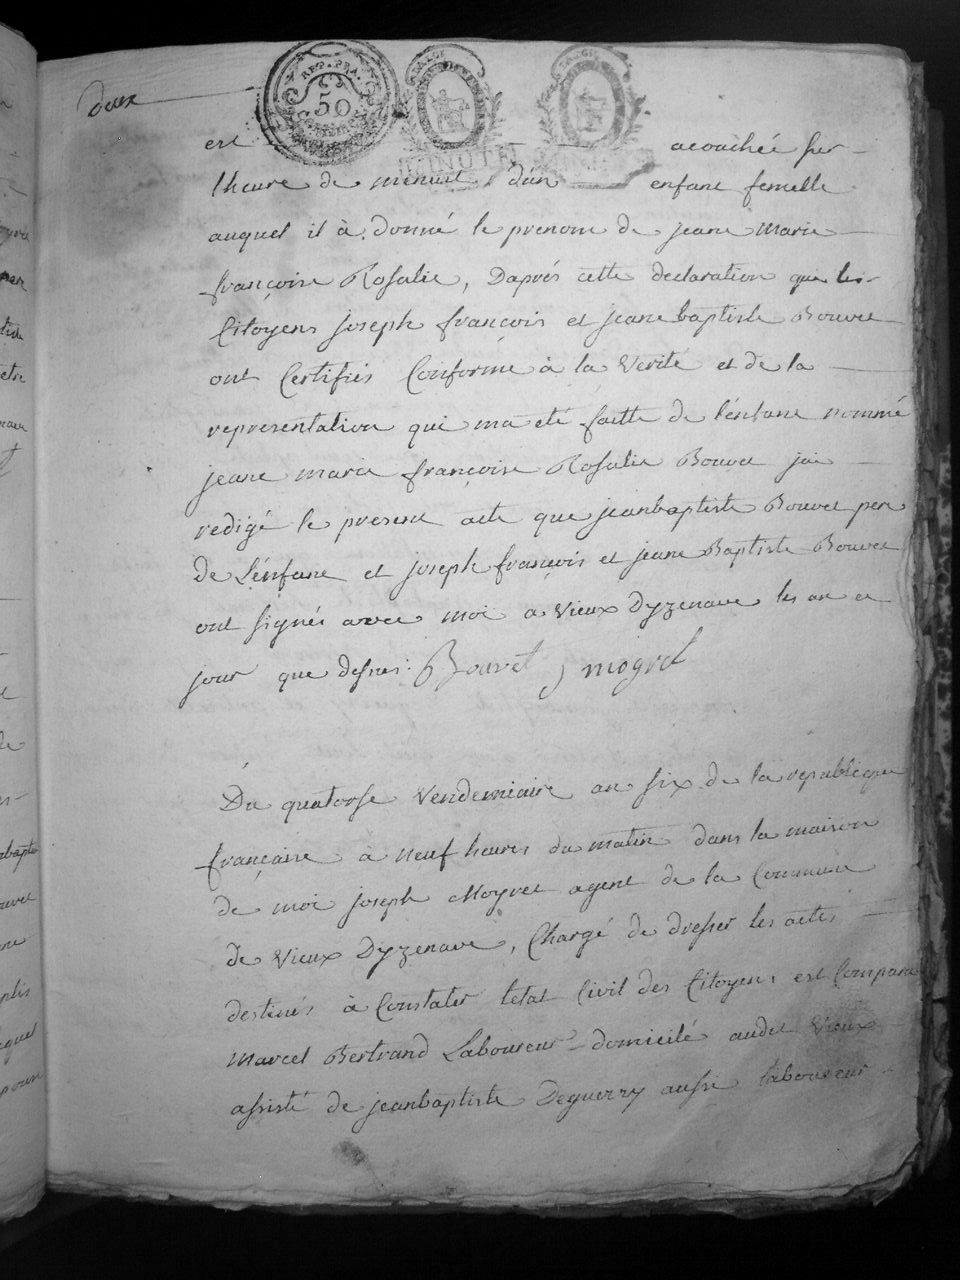 deux
REP. FRA.
50
CENTIMES
LA LOI
MINUTE
est acouchée sur
lheure de minuit d'un enfant femelle
auquel il à donné le prenom de jeane Marie
françoise Rosalie, D'aprés cette declaration que les
Citoyens joseph françois et jeane baptiste Bouvet
ont Certifiés Conforme à la Verité et de la
representation qui ma été faitte de l'énfant nommé
jeane marie françoise Rosalie Bouvet jai
redigé le present acte que jeanbaptiste Bouvet pere
de L'énfant et joseph françois et jeane Baptiste Bouvet
ont signés avec moi a Vieux Dyzenave les an et
jour que dessus. Bouvet j moyret
Du quatorse Vendemiaire an six de la republique
françaisse à neuf heures du matin dans la maison
de moi joseph Moyret agent de la Commune
de Vieux Dyzenave, Chargé de dresser les actes
destinés à Constater letat Civil des Citoyens est Comparu
Marcel Bertrand Laboureur domicilé audit Vieux
assisté de jeanbaptiste Deguerry aussi laboureur